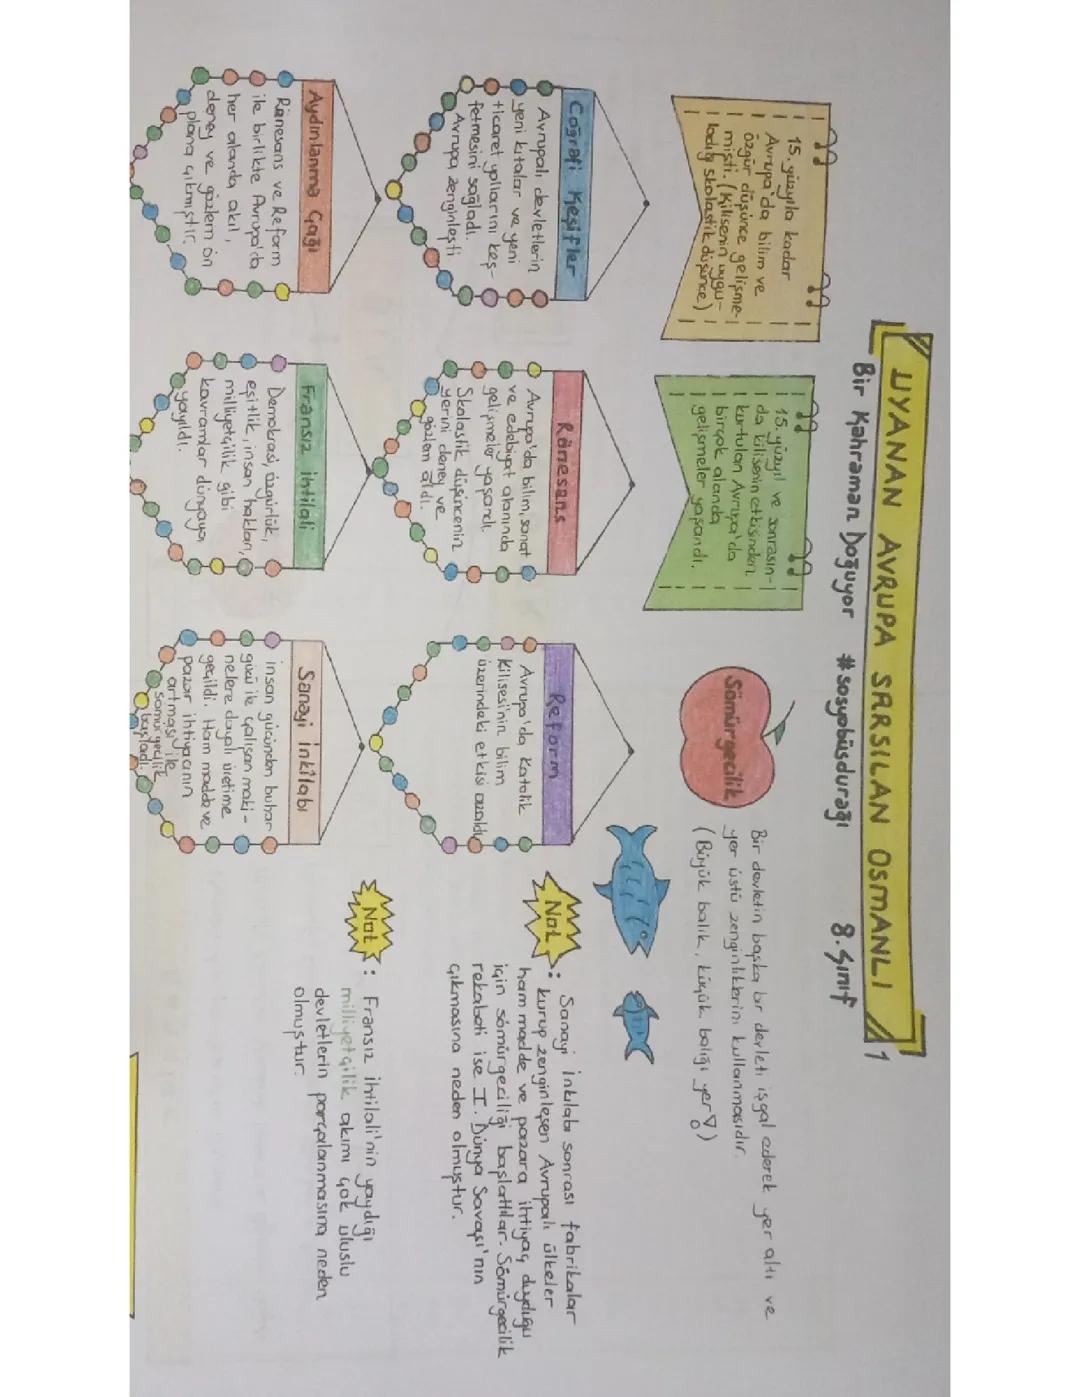 UYANAN AVRUPA SARSILAN OSMANLI
1
Bir Kahraman Doğuyor #sosyobüsdurağı 8.Sınıf
15. yüzyıla kadar
Avrupa'da bilim ve
özgür düşünce gelişme-
mişti. (Kilisenin uygu-
ladığı skolastik düşünce)
15. yüzyıl ve sonrasın-
da kilisenin etkisinden
kurtulan Avrupa'da
birçok alanda
gelişmeler yaşandı.
Sömürgecilik
Bir devletin başka bir devleti işgal ederek yer altı ve
yer üstü zenginliklerini kullanmasıdır.
(Büyük balık, küçük balığı yer!)
Coğrafi Keşifler
Avrupalı devletlerin
yeni kıtalar ve yeni
ticaret yollarını keş-
fetmesini sağladı.
Avrupa zenginleşti
Rönesans
Avrupa'da bilim, sanat
ve edebiyat alanında
gelişmeler yaşandı.
Skolastik düşüncenin
yerini deney ve
gözlem aldı.
Reform
Avrupa'da Katolik
Kilisesi'nin bilim
üzerindeki etkisi azaldı
Not: Sanayi İnkılabı sonrası fabrikalar
kurup zenginleşen Avrupalı ülkeler
ham madde ve pazara ihtiyaç duyduğu
için sömürgeciliği başlattılar. Sömürgecilik
rekabeti ise I. Dünya Savaşı'nın
çıkmasına neden olmuştur.
Aydınlanma Çağı
Rönesans ve Reform
ile birlikte Avrupa'da
her alanda akıl,
deney ve gözlem ön
plana çıkmıştır.
Fransız İhtilali
Demokrasi, özgürlük,
eşitlik, insan hakları,
milliyetçilik gibi
kavramlar dünyaya
yayıldı.
Sanayi İnkîlabı
insan gücünden buhar
gücü ile çalışan maki-
nelere dayalı üretime
geçildi. Ham madde ve
pazar ihtiyacının
artması ile
sömürgecilik
başladı.
Not: Fransız İhtilali'nin yaydığı
milliyetçilik akımı çok uluslu
devletlerin parçalanmasına neden
olmuştur.